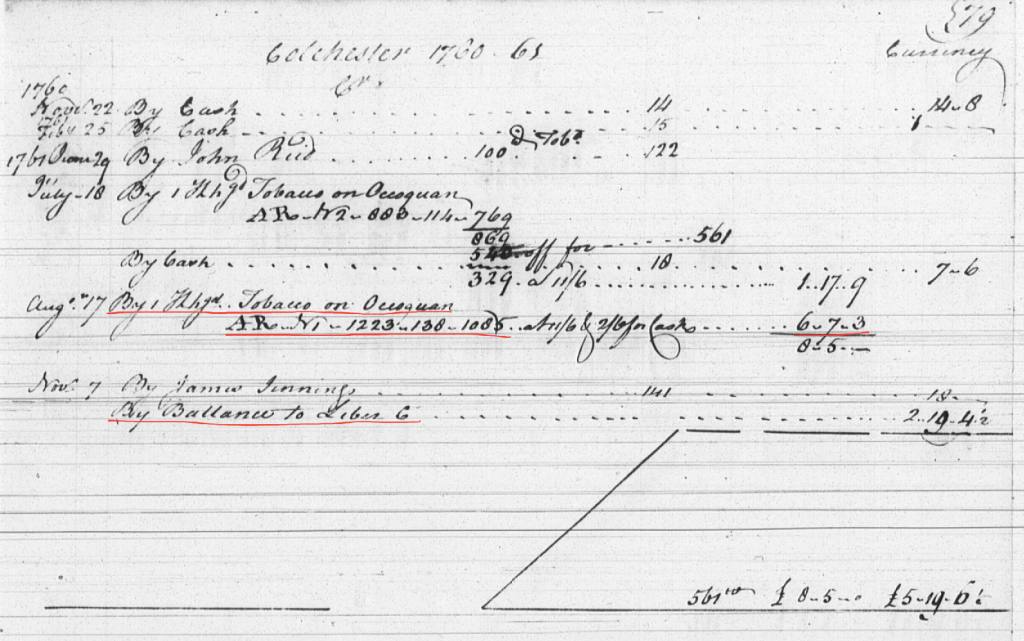 79
Colchester 1760-61
Currency
Cr.
1760
Novr. 22 By Cash 14 14-8
Feby 25 By Cash 15
1761 June 29 By John Reid 100 lb Tobo. 122
July 18 By 1 Hhgd Tobacco on Occoquan
AR-No2-883-114-769
869
540 off for 561
By Cash 18 7-6
329 - a 11/6 1.17.9
Augt. 17 By 1 Hhgd. Tobacco on Occoquan
AR-No1-1223-138-1085 .. at 11/6 & 2/6 for Cask 6-7-3
8-5-
Novr. 7 By James Jennings 141 18-
By Ballance to Liber C 2.19.4½
561 wt £ 8-5-0 £5-19-6½